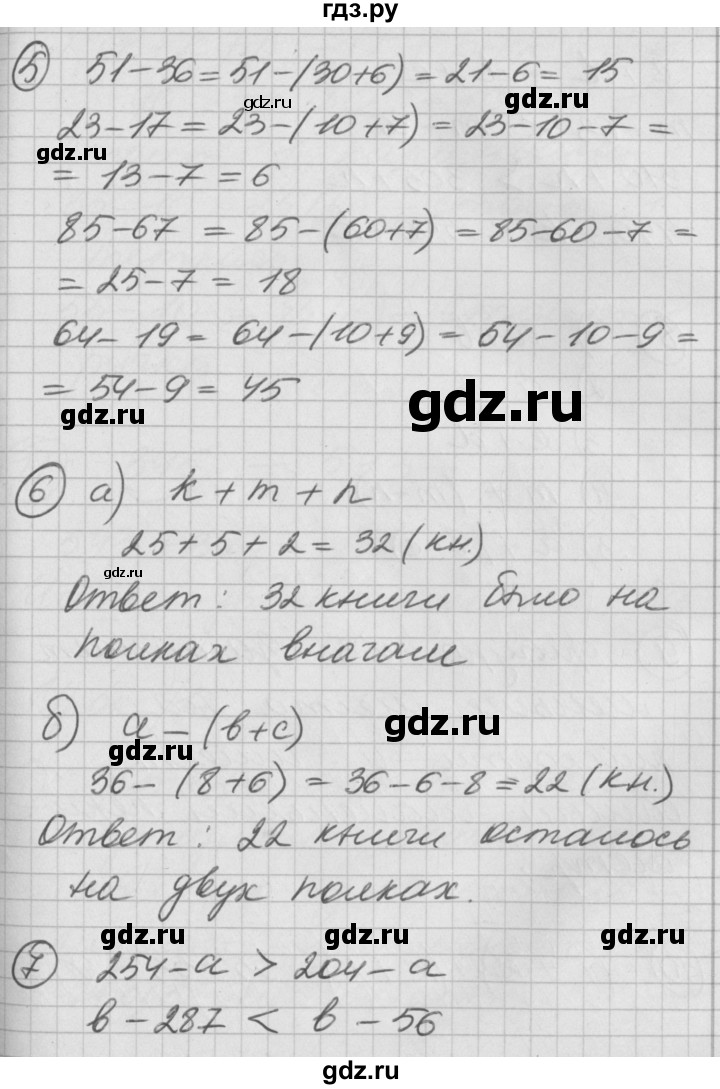 гдз.ру
5 51-36=51-(30+6)=21-6=15
gdz.ru
gdz.ru
23-17=23-(10+7)=23-10-7=
gdz.ru
=13-7=6
85-67=85-(60+7)=85-60-7=
=25-7=18
64-19=64-(10+9)=64-10-9=
=54-9=45
gdz.ru
gdz.ru
6 а) k+m+n
25+5+2=32(кн.)
gdz.ru
Ответ: 32 книги было на
полках вначале
б) a-(b+c)
gdz.ru
gdz.ru
36-(8+6)=36-6-8=22(кн.)
Ответ: 22 книги осталось
на двух полках.
gdz.ru
gdz.ru
gdz.ru
7 254-a > 204-a
b-287 < b-56
gdz.ru